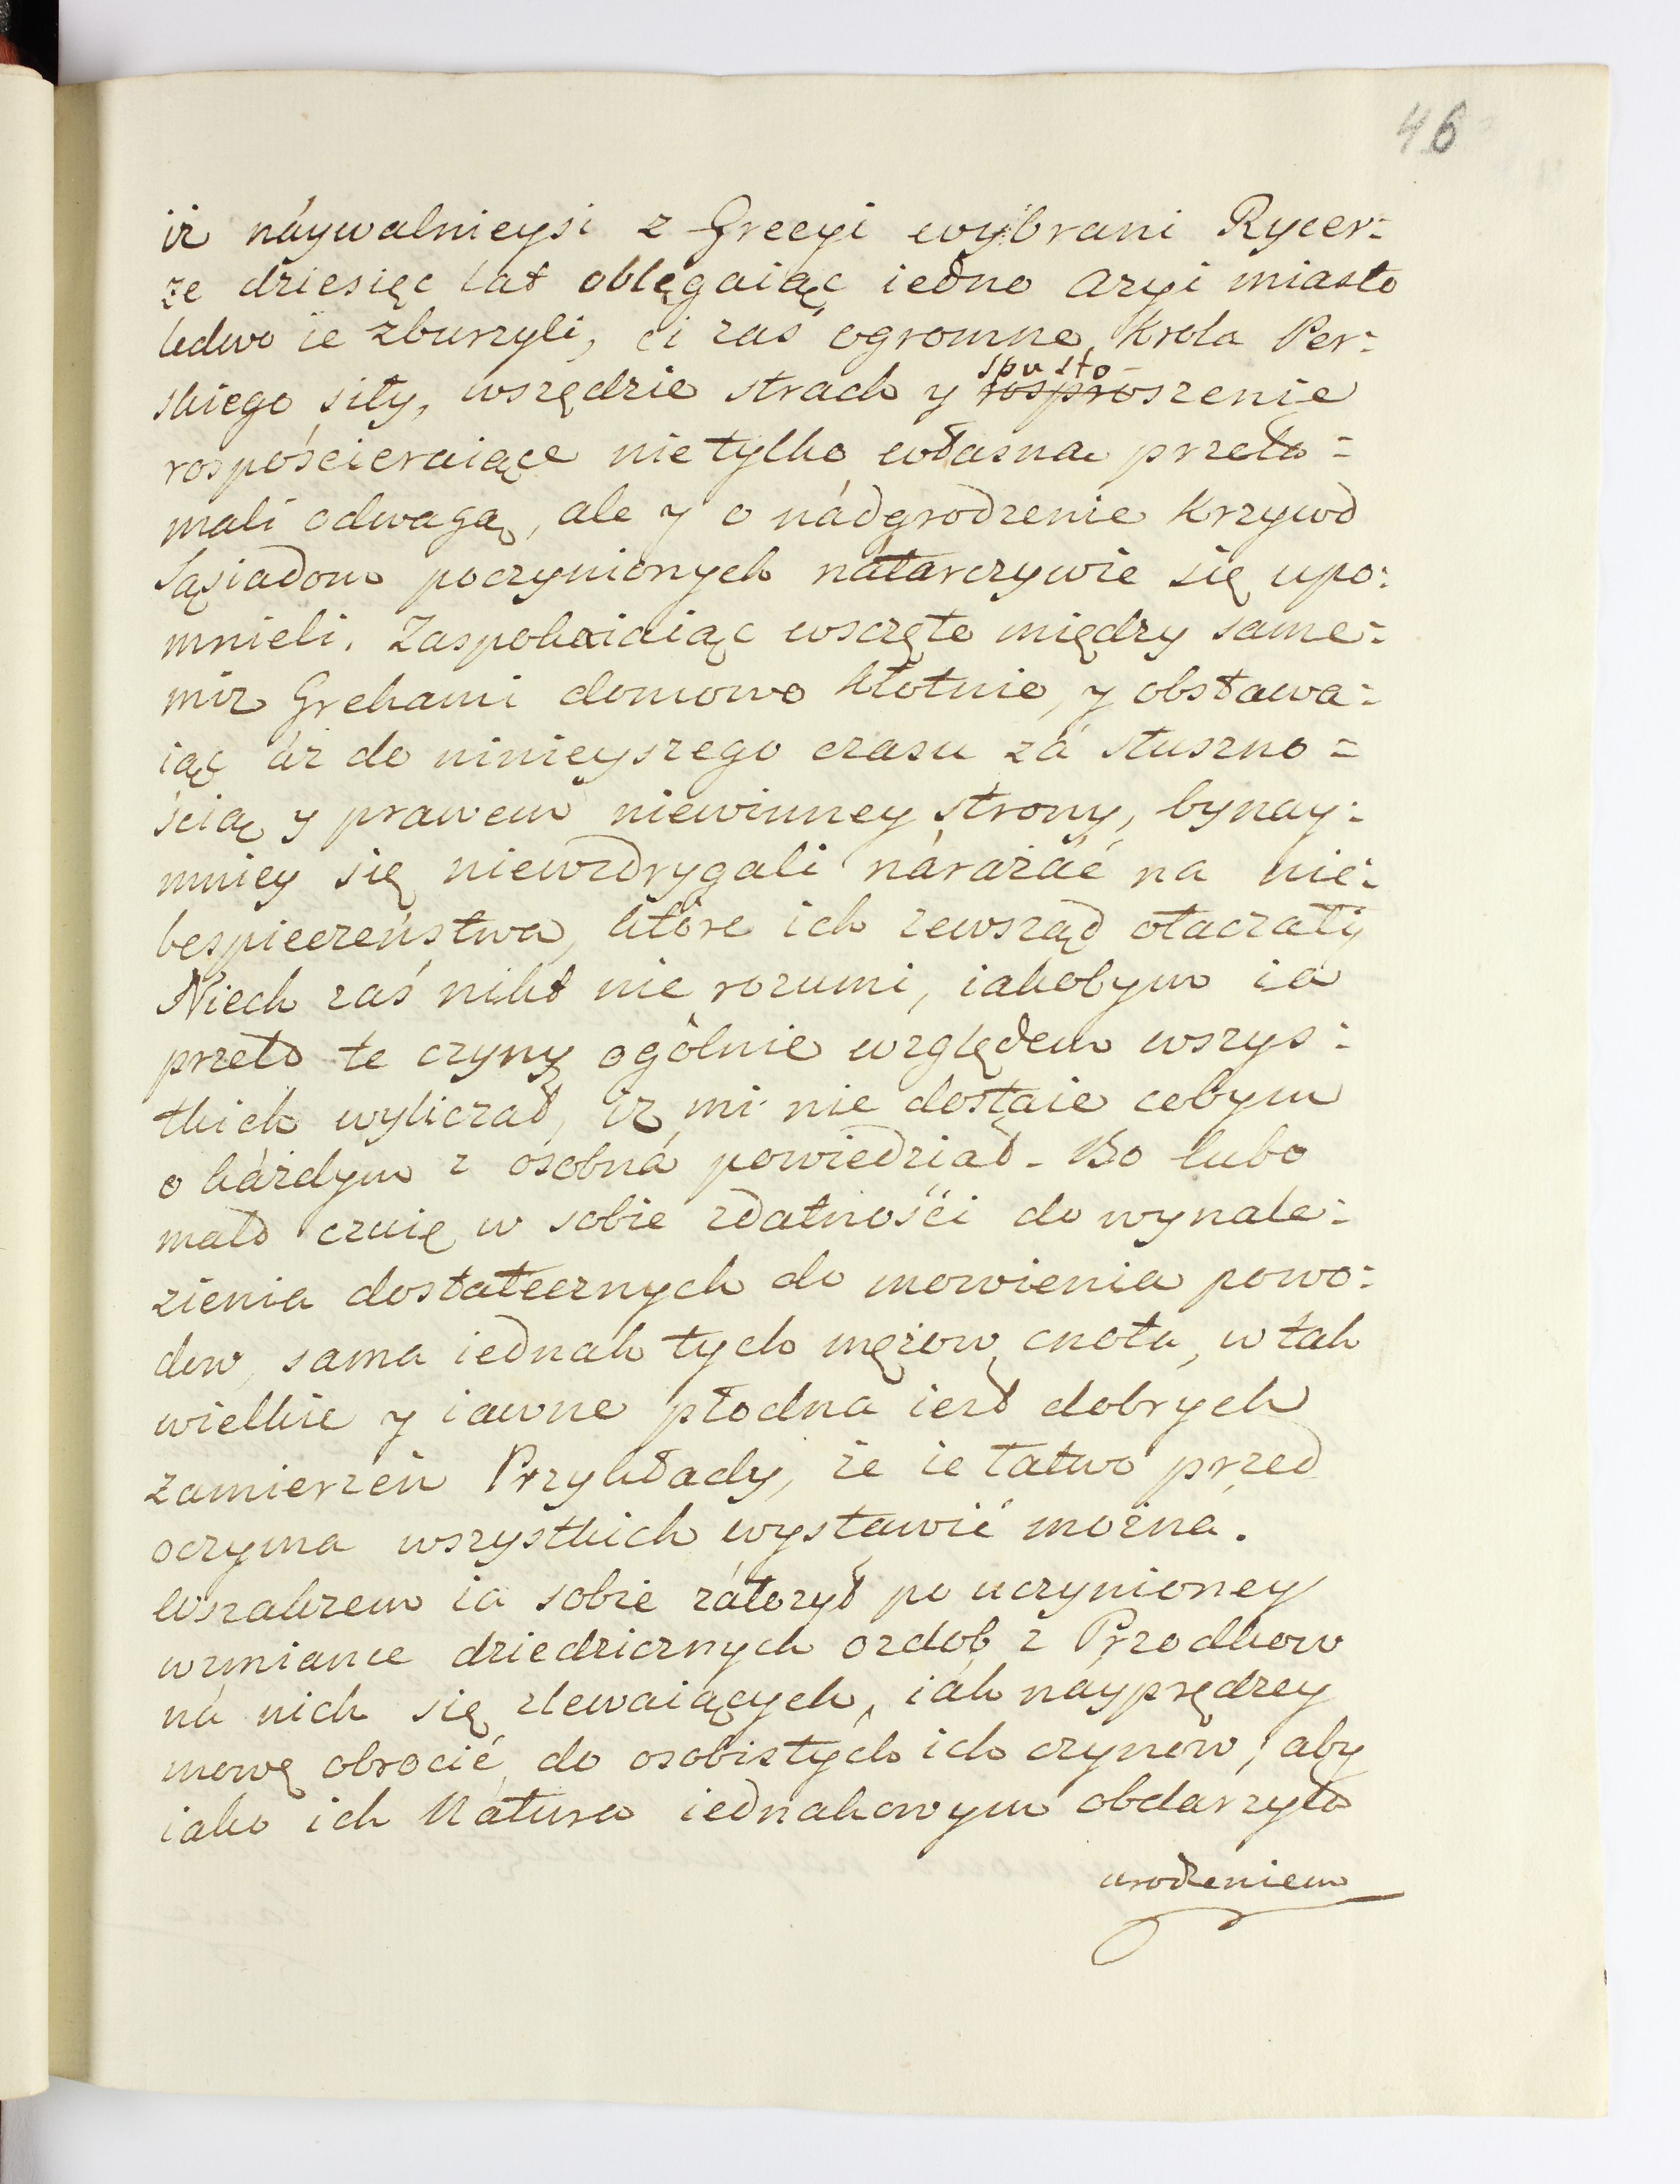 46
iż náywalnieysi z Grecyi wybrani Rycer=
ze dziesięc lat oblęgaiąc iedno Azyi miasto
ledwo ie zburzyli, ci zaś ogromne Krola Per=
skiego siły, wszędzie strach y rosproszenie
spusto-
rospościeraiące nie tylko własną przeła=
mali odwagą, ale y o nádgrodzenie Krzywd
Sąsiadom poczynionych nátarczywie się upo=
mnieli. Zaspokaiaiąc wszczęte między same=
miż Grekami domowe kłotnie, y obstawa=
iąc áż do ninieyszego czasu zá słuszno=
ścią y prawem niewinney strony, bynay=
mniey się niewzdrygali nárażáć na nie=
bespieczeństwa, które ich zewsząd otaczały
Niech zaś nikt nie rozumi, iakobym ia
przeto te czyny ogólnie względem wszys=
tkich wyliczał, iż mi nie dostaie cobym
o káżdym z osobná powiedział. Bo lubo
mało czuię w sobie zdatności do wynale=
zienia dostatecznych do mowienia powo=
dow, sama iednak tych mężow cnota, w tak
wielkie y iawne płodna iest dobrych
zamierzeń Przykłady, że ie łatwo przed
oczyma wszystkich wystawić możná.
Wszakżem ia sobie záłożył po uczynioney
wzmiance dziedzicznych ozdob z Przodkow
ná nich się zlewaiących, iák náyprędzey
mowę obrocić do osobistych ich czynow, aby
iako ich Natura iednakowym obdarzyła
urodzeniem